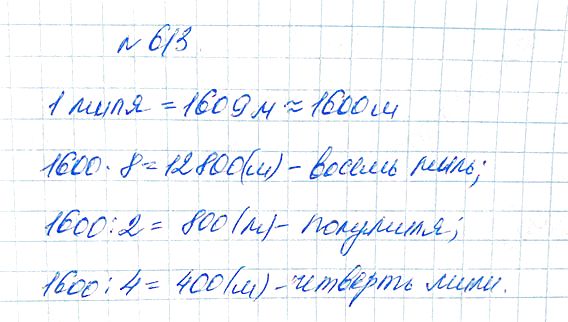 № 613.
1 миля = 1609 м ≈ 1600 м
1600 · 8 = 12800 (м) – восемь миль;
1600 : 2 = 800 (м) – полумиля;
1600 : 4 = 400 (м) – четверть мили.